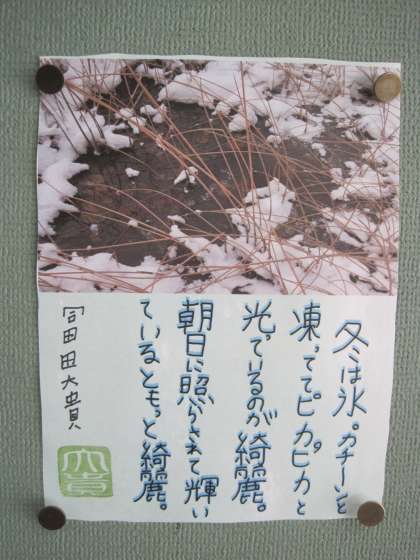 冬は氷。カチーンと
凍っててピカピカと
光っているのが綺麗。
朝日に照らされて輝い
ているともっと綺麗。
冨田大貴
大貴